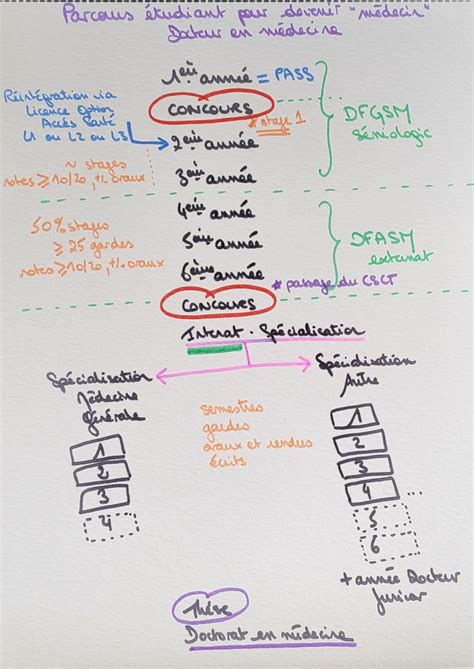 Parcours étudiant pour devenir "médecin"
Docteur en médecine
1ère année = PASS
Réintégration via
Licence Option
Accès Santé
L1 ou L2 ou L3
CONCOURS
* stage 1
2ème année
DFGSM
Sémiologie
~ stages
notes ≥ 10/20, +/- oraux
3ème année
4ème année
50% stages
≥ 25 gardes
notes ≥ 10/20, +/- oraux
5ème année
DFASM
externat
6ème année
* passage du CSCT
CONCOURS
Internat - Spécialisation
Spécialisation
Médecine
Générale
Spécialisation
Autre
semestres
gardes
oraux et rendus
écrits
1
2
3
4
1
2
3
4 ...
5
6
+ année Docteur
Junior
Thèse
Doctorat en médecine